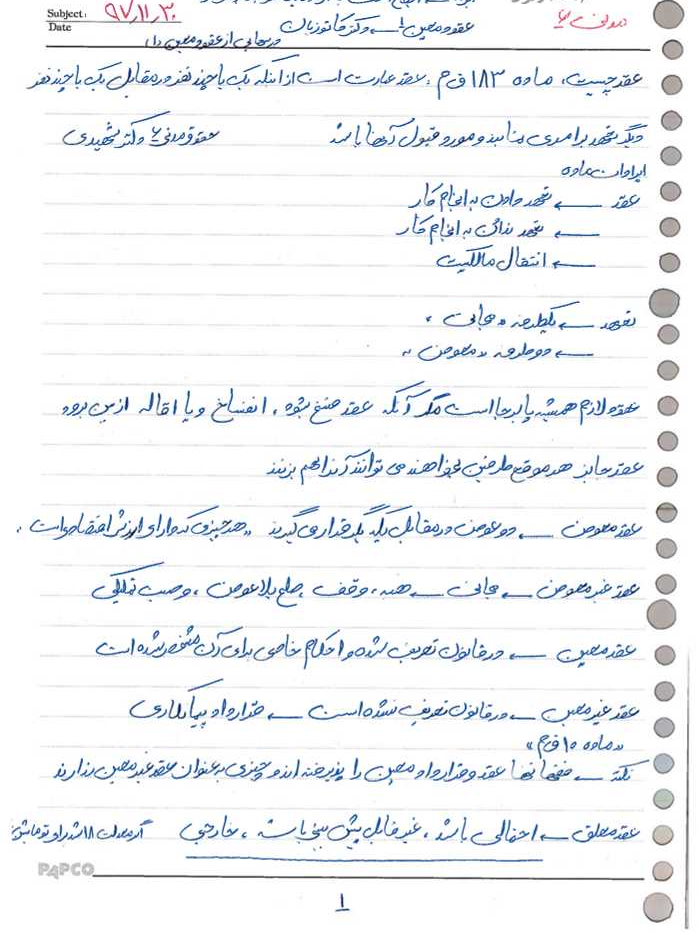 Subject: ۹۷,۱۱,۳۰
Date
مدنی ۶
عقود معین ۱ ← دکتر کاتوزیان
درسهایی از عقود معین ۱
عقد چیست، ماده ۱۸۳ ق م، عقد عبارت است از اینکه یک یا چند نفر در مقابل یک یا چند نفر
دیگر تعهد بر امری نمایند و مورد قبول آنها باشد
حقوق مدنی ۶ دکتر شهیدی
ایرادات ماده
عقد ← تعهد دادن به انجام کار
← تعهد ندادن به انجام کار
← انتقال مالکیت
تعهد ← یکطرفه «مجانی»
← دو طرفه «معوض»
عقود لازم همیشه پابرجا است مگر آنکه عقد فسخ بشود، انفساخ و یا اقاله از بین برود
عقد جایز هر موقع طرفین بخواهند می توانند آنرا بهم بزنند
عقد معوض ← دو عوض در مقابل یکدیگر قرار می گیرند «هر چیزی که دارای ارزش اقتصادی است»
عقد غیر معوض ← مجانی ← هبه، وقف، صلح بلاعوض، وصیت تملیکی
عقد معین ← در قانون تعریف شده و احکام خاصی برای آن مشخص شده است
عقد غیر معین ← در قانون تعریف نشده است ← قرارداد پیمانکاری
«ماده ۱۰ ق م»
نکته ← فقها تنها عقد و قرارداد معین را پذیرفته اند و چیزی به عنوان عقد غیر معین ندارند
عقد معلق ← احتمالی باشد، غیر قابل پیش بینی باشد، خارجی اگر معدلت ۱۸ شد
PAPCO
۱